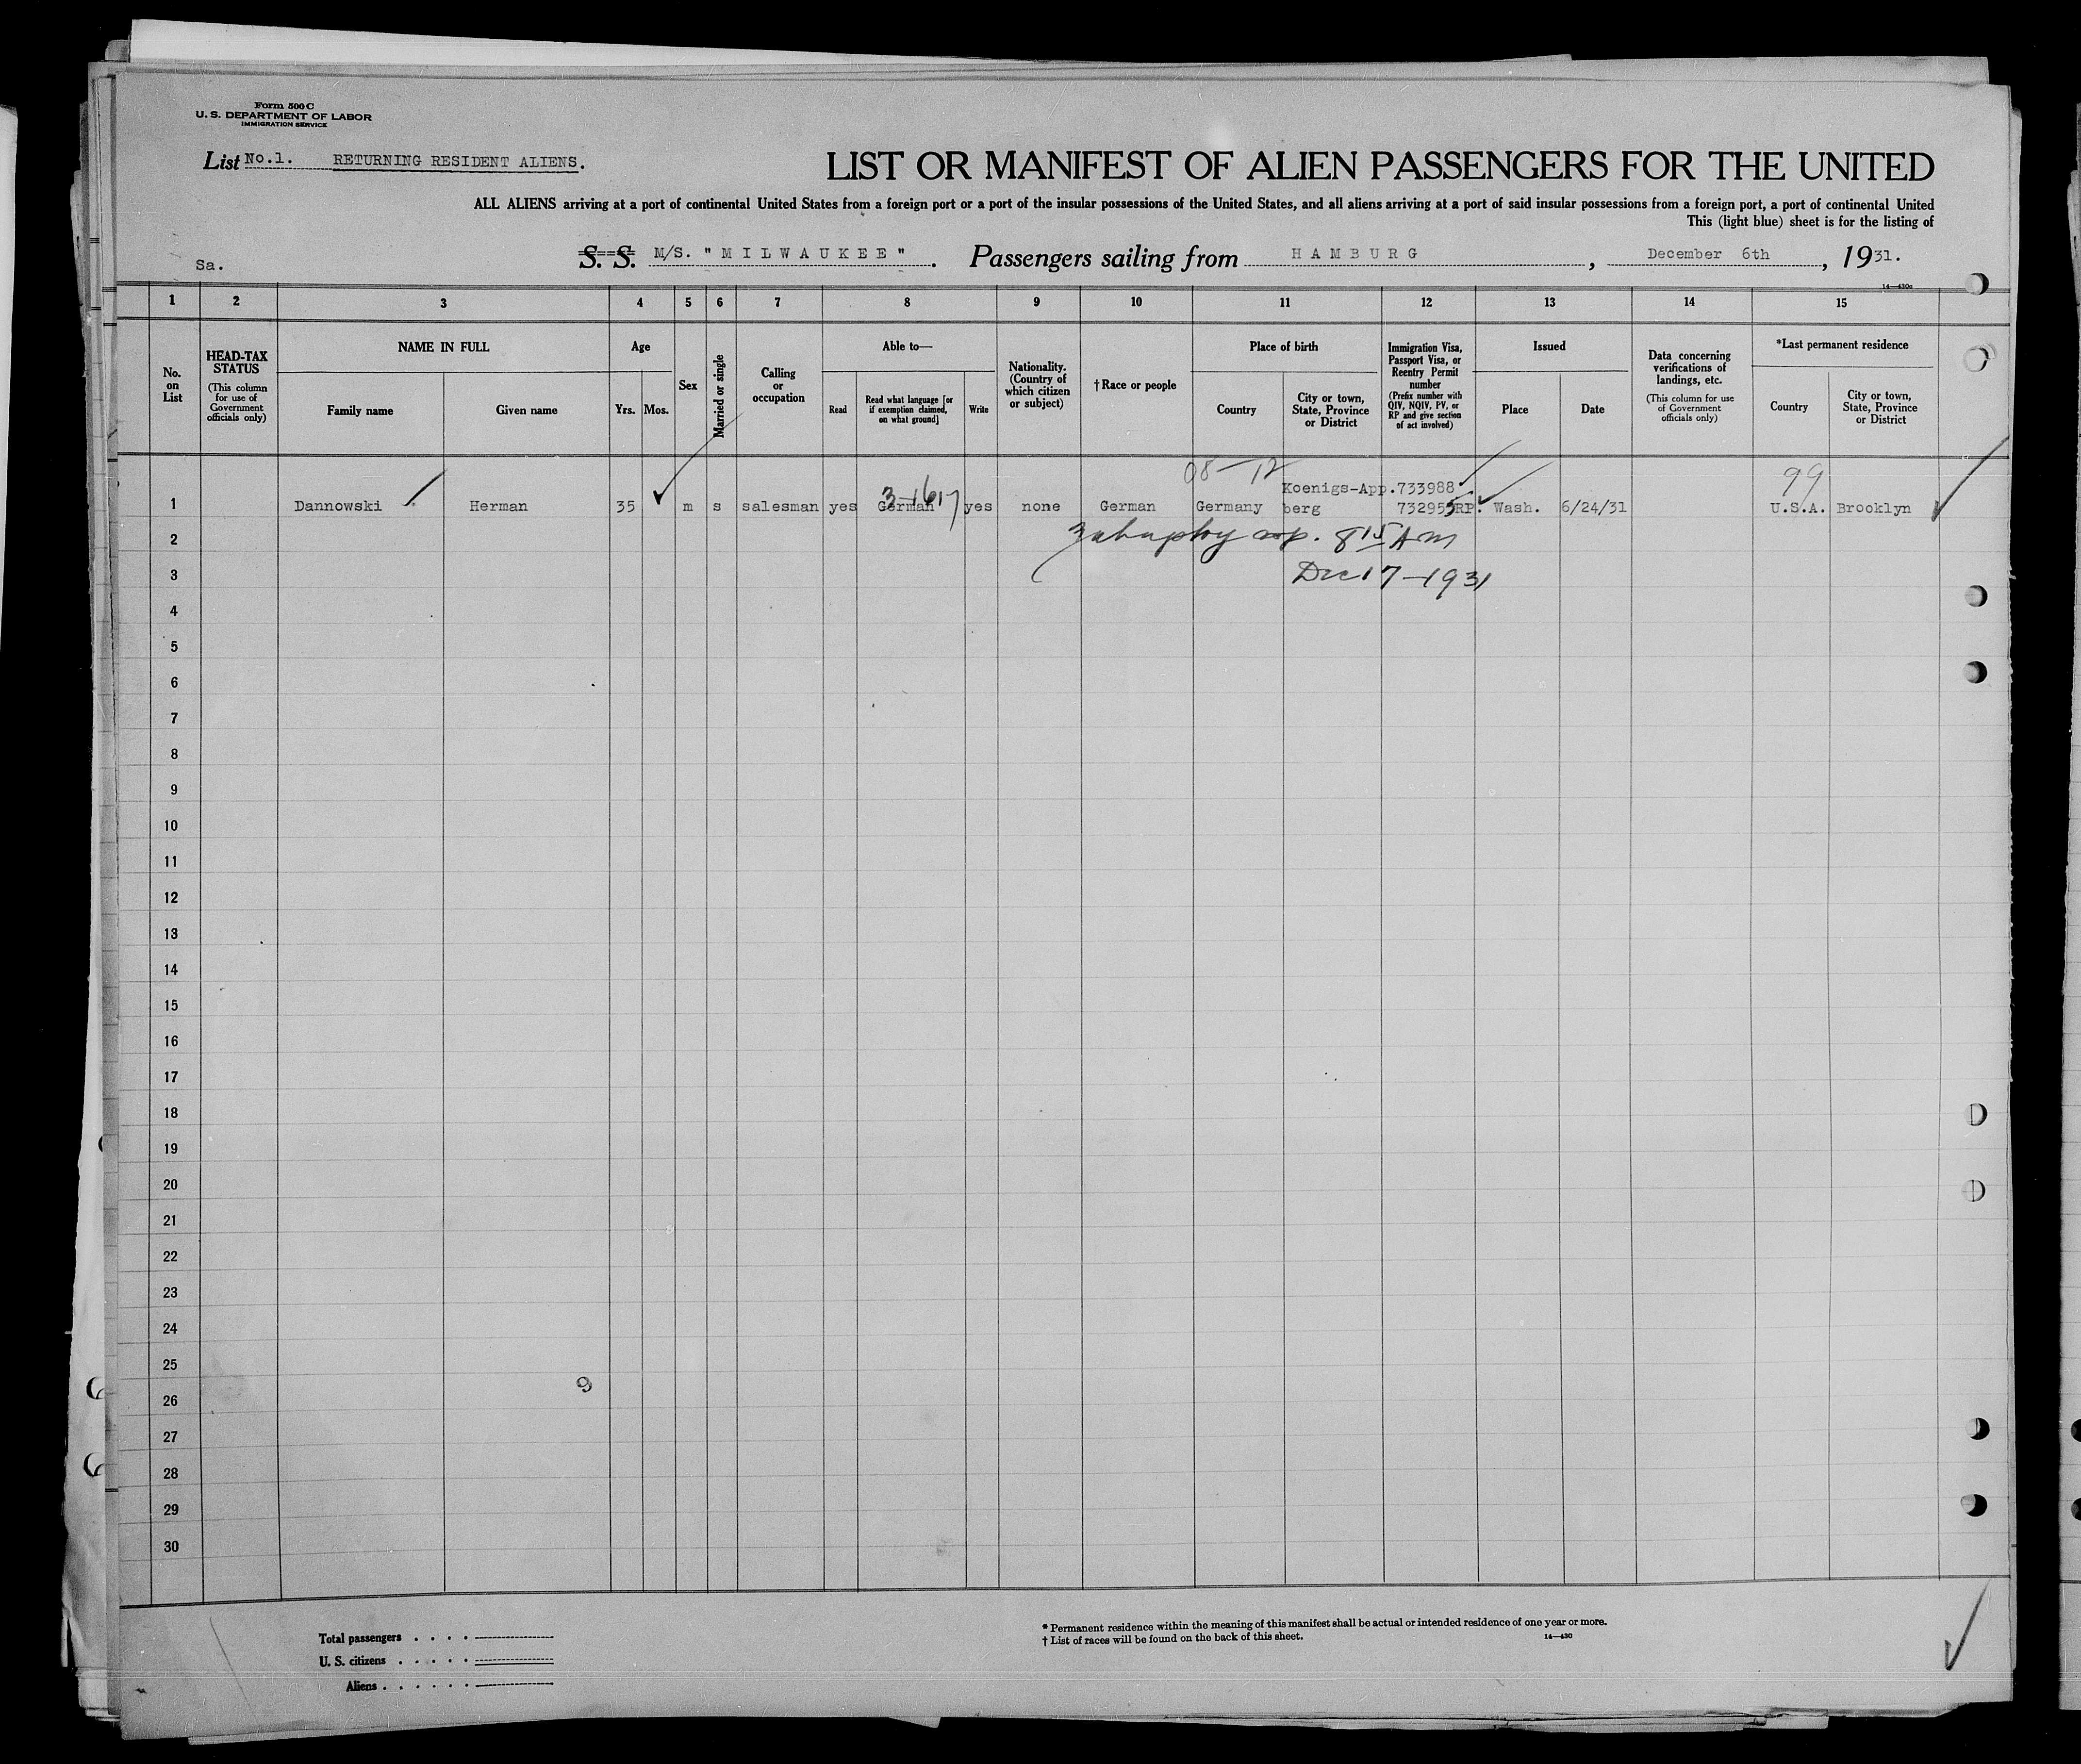 Form 500 C
U. S. DEPARTMENT OF LABOR
IMMIGRATION SERVICE
List No.1. RETURNING RESIDENT ALIENS.
LIST OR MANIFEST OF ALIEN PASSENGERS FOR THE UNITED
ALL ALIENS arriving at a port of continental United States from a foreign port or a port of the insular possessions of the United States, and all aliens arriving at a port of said insular possessions from a foreign port, a port of continental United
This (light blue) sheet is for the listing of
Sa.
S. S. M/S. "MILWAUKEE". Passengers sailing from HAMBURG, December 6th, 1931.
14—430c
1 2 3 4 5 6 7 8 9 10 11 12 13 14 15
No. on List
HEAD-TAX STATUS
(This column for use of Government officials only)
NAME IN FULL
Family name
Given name
Age
Yrs.
Mos.
Sex
Married or single
Calling or occupation
Able to—
Read
Read what language [or if exemption claimed, on what ground]
Write
Nationality. (Country of which citizen or subject)
†Race or people
Place of birth
Country
City or town, State, Province or District
Immigration Visa, Passport Visa, or Reentry Permit number
(Prefix number with QIV, NQIV, PV, or RP and give section of act involved)
Issued
Place
Date
Data concerning verifications of landings, etc.
(This column for use of Government officials only)
*Last permanent residence
Country
City or town, State, Province or District
08-12
99
Koenigs-App.733988
1 Dannowski Herman 35 m s salesman yes German yes none German Germany berg 732955RP. Wash. 6/24/31 U.S.A. Brooklyn
2 8 15 AM
3 Dec 17-1931
4
5
6
7
8
9
10
11
12
13
14
15
16
17
18
19
20
21
22
23
24
25
9
26
27
28
29
30
Total passengers
U. S. citizens
Aliens
* Permanent residence within the meaning of this manifest shall be actual or intended residence of one year or more.
† List of races will be found on the back of this sheet.
14—430